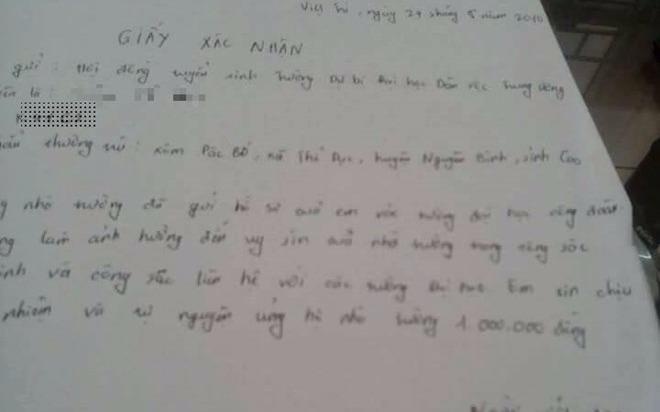 Việt Trì, ngày 29 tháng 5 năm 2010
GIẤY XÁC NHẬN
gửi : Hội đồng tuyển sinh trường Dự bị Đại học Dân tộc Trung ương
tên là :
khẩu thường trú : xóm Pác Bó, xã Thể Dục, huyện Nguyên Bình, tỉnh Cao
nhà trường đã gửi hồ sơ của em vào trường đại học công đoàn
làm ảnh hưởng đến uy tín của nhà trường trong công tác
và công sức liên hệ với các trường đại học. Em xin chịu
nhiệm và tự nguyện ủng hộ nhà trường 1.000.000 đồng